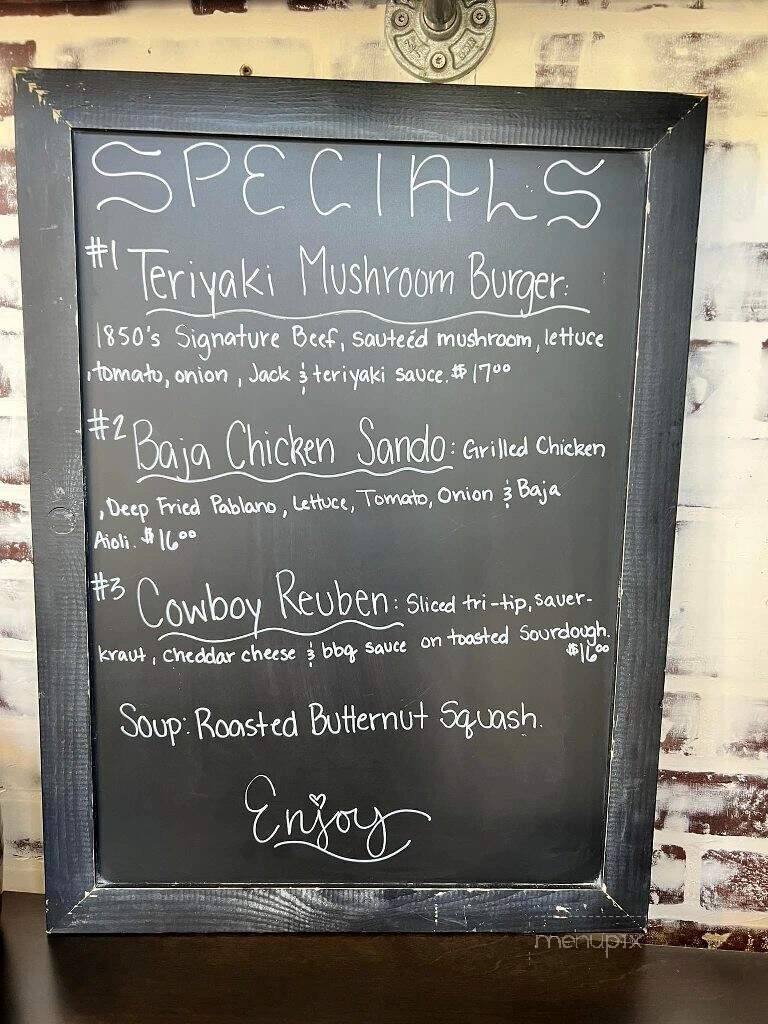 SPECIALS
#1 Teriyaki Mushroom Burger:
1850's Signature Beef, sauteéd mushroom, lettuce
, tomato, onion, Jack & teriyaki sauce. $17⁰⁰
#2 Baja Chicken Sando: Grilled Chicken
, Deep Fried Pablano, Lettuce, Tomato, Onion & Baja
Aioli. $16⁰⁰
#3 Cowboy Reuben: Sliced tri-tip, sauer-
kraut, cheddar cheese & bbq sauce on toasted Sourdough.
$16⁰⁰
Soup: Roasted Butternut Squash.
Enjoy
menupix